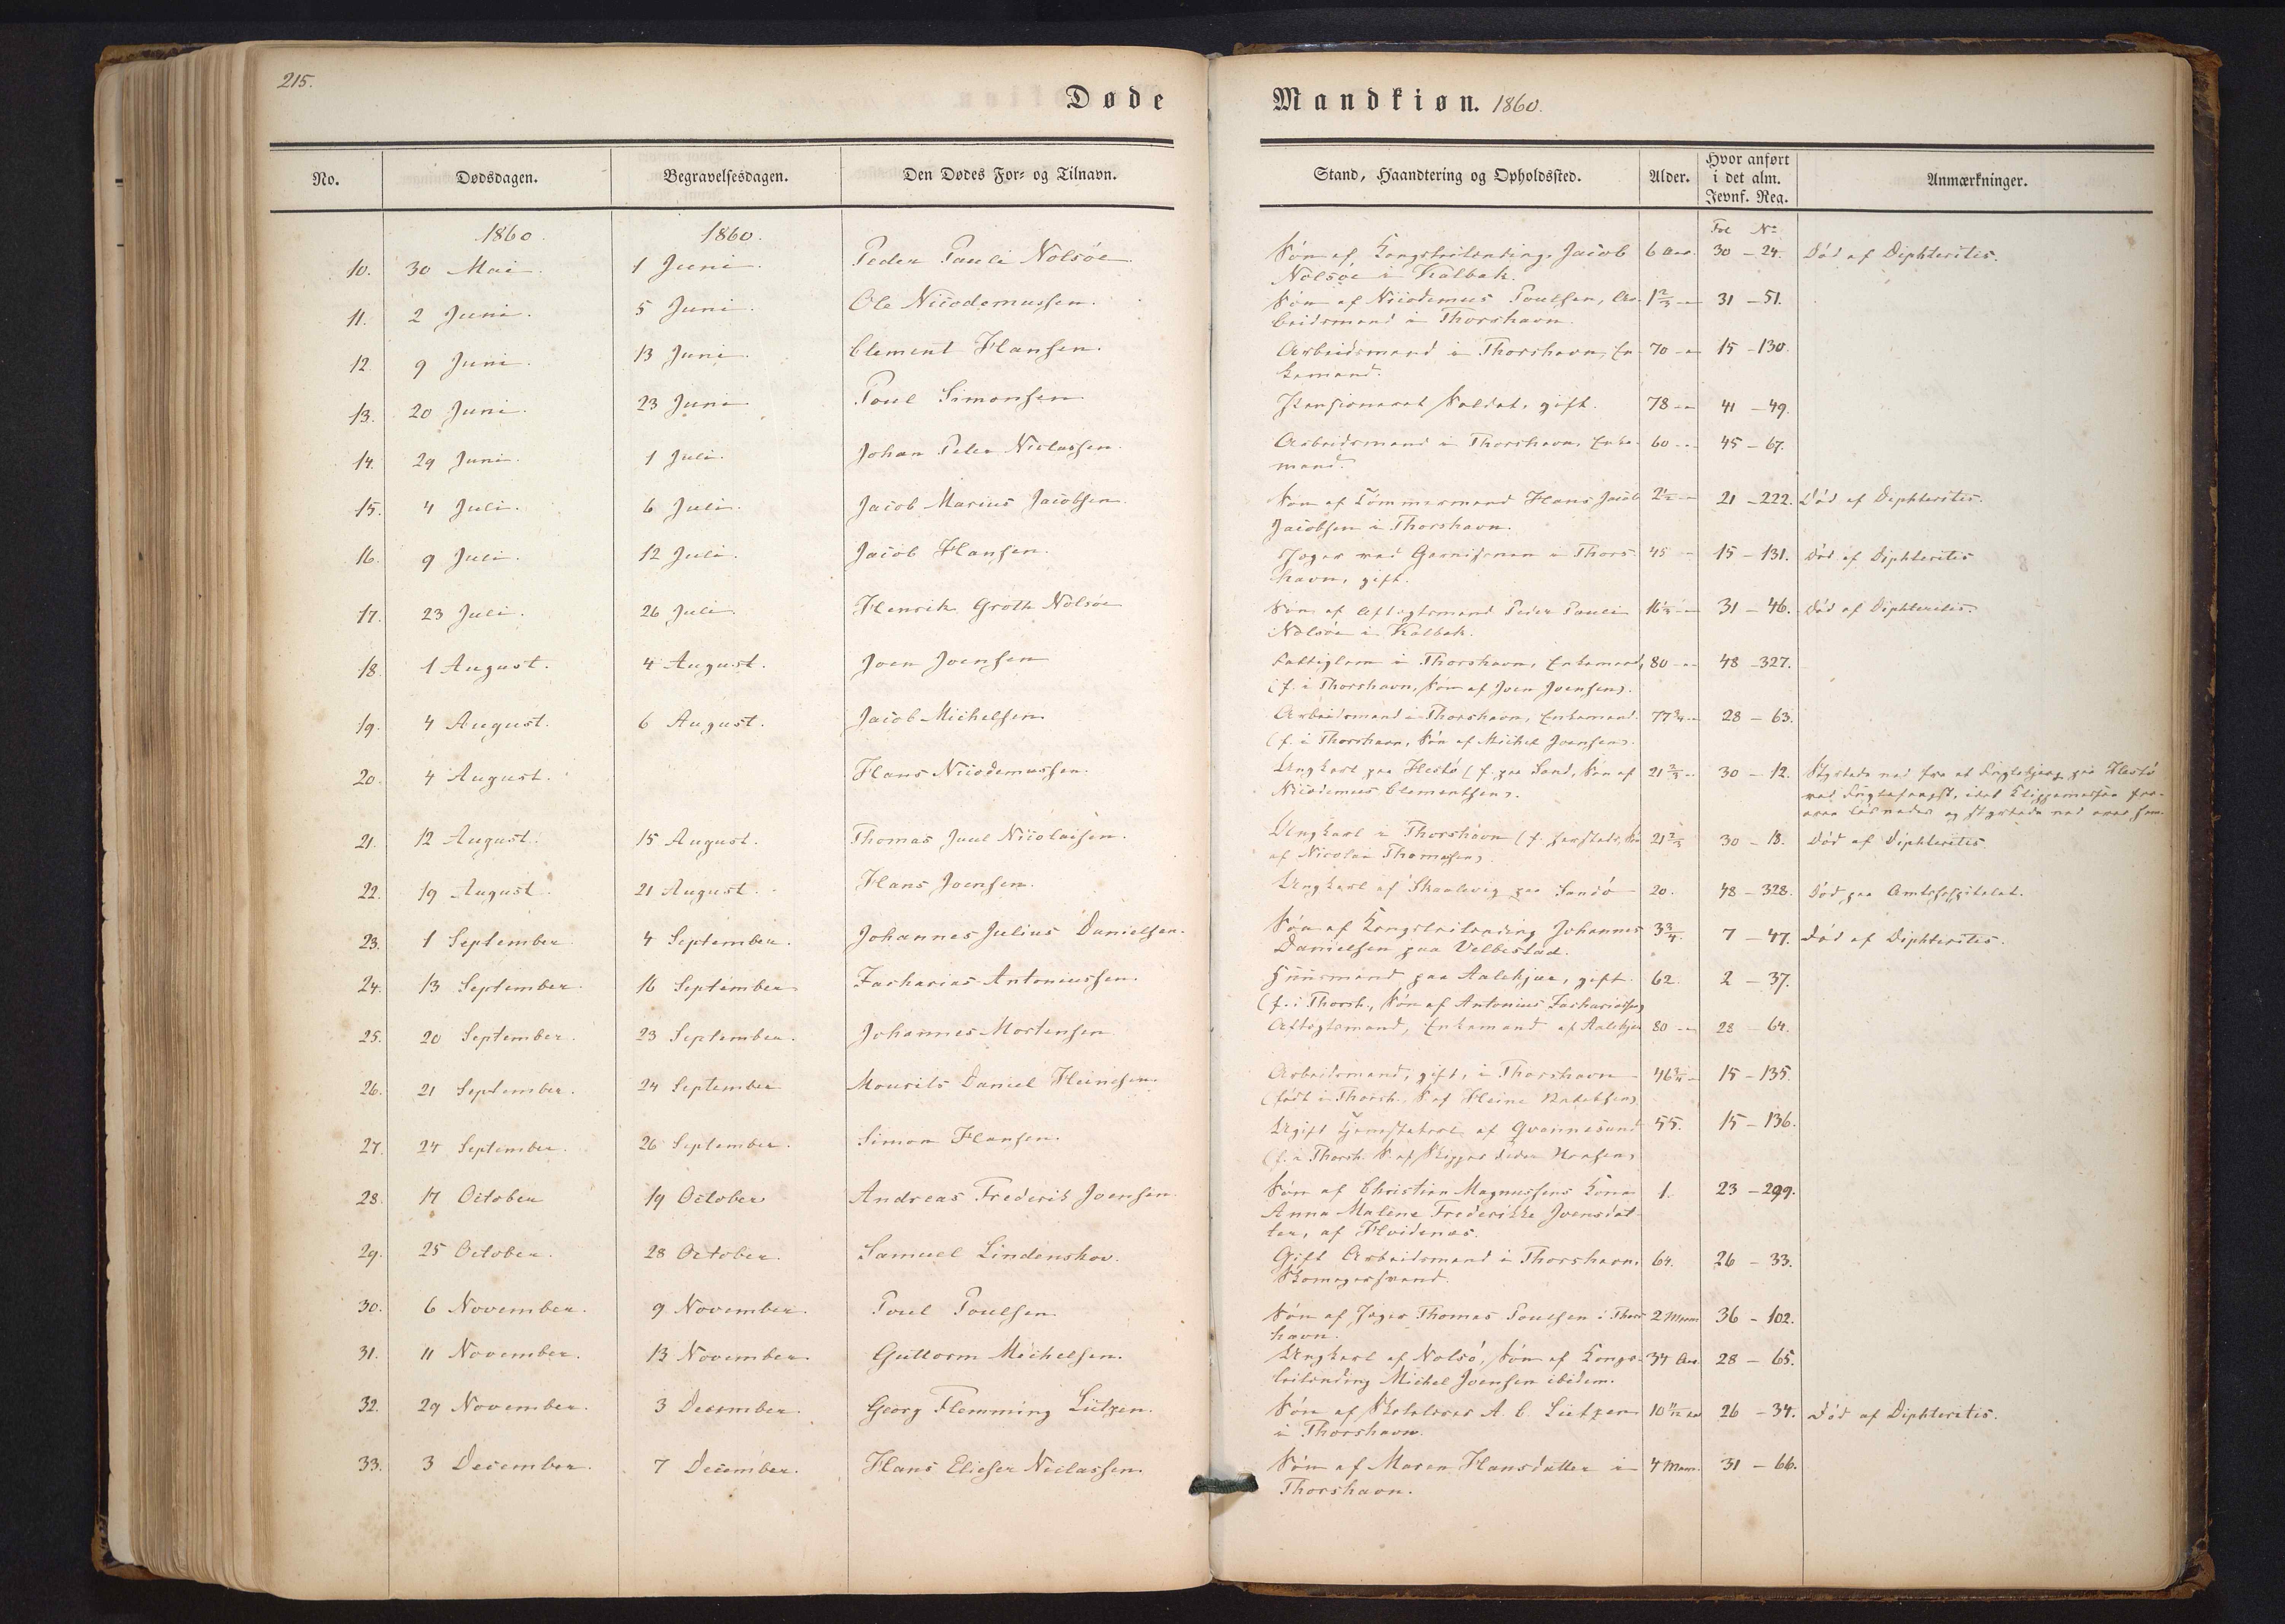 215.
Døde
Mandkiøn. 1860.
No.
Dødsdagen.
Begravelsesdagen.
Den Dødes For= og Tilnavn.
Stand, Haandtering og Opholdssted.
Alder.
Hvor anført
i det alm.
Jevnf. Reg.
Anmærkninger.
1860. 1860. Fol No
10. 30 Mai. 1 Juni. Peder Pauli Nolsöe. Sön af Kongsleilending Jacob 6 Aar. 30 – 24. Död af Diphteritis.
Nolsöe i Kalbak.
11. 2 Juni. 5 Juni. Ole Nicodemussen. Sön af Nicodemus Poulsen, Ar- 1 2/3 – 31 – 51.
beidsmand i Thorshavn.
12. 9 Juni. 13 Juni. Clement Hansen. Arbeidsmand i Thorshavn, En- 70 – 15 – 130.
kemand.
13. 20 Juni. 23 Juni Poul Simonsen Pensioneret Soldat, gift. 78 – 41 – 49.
14. 29 Juni. 1 Juli. Johan Peter Niclassen. Arbeidsmand i Thorshavn, Enke- 60 – 45 – 67.
mand.
15. 4 Juli. 6 Juli. Jacob Marius Jacobsen. Sön af Tömmermand Hans Jacob 2 1/2 – 21 – 222. Död af Diphteritis.
Jacobsen i Thorshavn.
16. 9 Juli. 12 Juli. Jacob Hansen. Jæger ved Garnisonen i Thors- 45 – 15 – 131. Död af Diphteritis
havn, gift.
17. 23 Juli. 26 Juli Henrik Groth Nolsöe Sön af Aftægtsmand Peder Pauli 16 1/2 – 31 – 46. Död af Diphteritis.
Nolsöe i Kalbak.
18. 1 August. 4 August. Joen Joensen Fattiglem i Thorshavn, Enkemand, 80 – 48 – 327.
(f. i Thorshavn, Sön af Joen Joensen).
19. 4 August. 6 August. Jacob Michelsen Arbeidsmand i Thorshavn, Enkemand. 77 3/4 – 28 – 63.
(f. i Thorshavn, Sön af Michel Joensen).
20. 4 August. Hans Nicodemussen. Ungkarl paa Hestö (f. paa Sand, Sön af 21 2/3 – 30 – 12. Styrtede ned fra et Fuglebjerg paa Hestö
Nicodemus Clementsen). ved Fuglefangst, idet Klippemassen for-
oven lösnedes og styrtede ned over ham.
21. 12 August. 15 August. Thomas Juul Nicolaisen. Ungkarl i Thorshavn (f. sammesteds, Sön 21 2/3 30 – 13. Död af Diphteritis.
af Nicolai Thomasen).
22. 19 August. 21 August. Hans Joensen. Ungkarl af Skaalevig paa Sandö 20. 48 – 328. Död paa Amtshospitalet.
23. 1 September. 4 September. Johannes Julius Danielsen. Sön af Kongsleilending Johannes 3 3/4. 7 – 47. Död af Diphteritis.
Danielsen paa Velbestad.
24. 13 September. 16 September Zacharias Antoniussen. Huusmand paa Aalekjær, gift. 62. 2 – 37.
(f. i Thorsh., Sön af Antonius Zachariassen)
25. 20 September. 23 September. Johannes Mortensen Aftægtsmand, Enkemand af Aalekjær 80 – 28 – 64.
26. 21 September. 24 September Mourits Daniel Heinesen. Arbeidsmand, gift, i Thorshavn 46 3/4 – 15 – 135.
(födt i Thorsh., S. af Heine
27. 24 September. 26 September. Simon Hansen. Ugift Tjenestekarl af Qvannesund 55. 15 – 136.
(f. i Thorsh. S. af Skipper Peder Hansen)
28. 17 October 19 October Andreas Frederik Joensen. Sön af Christian Magnussens Kone 1. 23 – 299.
Anna Malene Frederikke Joensdat-
ter, af Hvidenæs.
29. 25 October. 28 October. Samuel Lindenskov. Gift Arbeidsmand i Thorshavn, 64. 26 – 33.
Skomagersvend.
30. 6 November. 9 November. Poul Poulsen Sön af Jæger Thomas Poulsen i Thors- 2 Maan 36 – 102.
havn.
31. 11 November. 13 November. Guttorm Michelsen. Ungkarl af Nolsö, Sön af Kongs- 34 Aar. 28 – 65.
leilending Michel Joensen ibidem.
32. 29 November. 3 December. Georg Flemming Lützen. Sön af Skolelærer A. C. Lützen 10 11/12 Aar 26 – 34. Död af Diphteritis.
i Thorshavn.
33. 3 December. 7 December. Hans Elieser Niclassen. Sön af Maren Hansdatter i 4 Maan. 31 – 66.
Thorshavn.